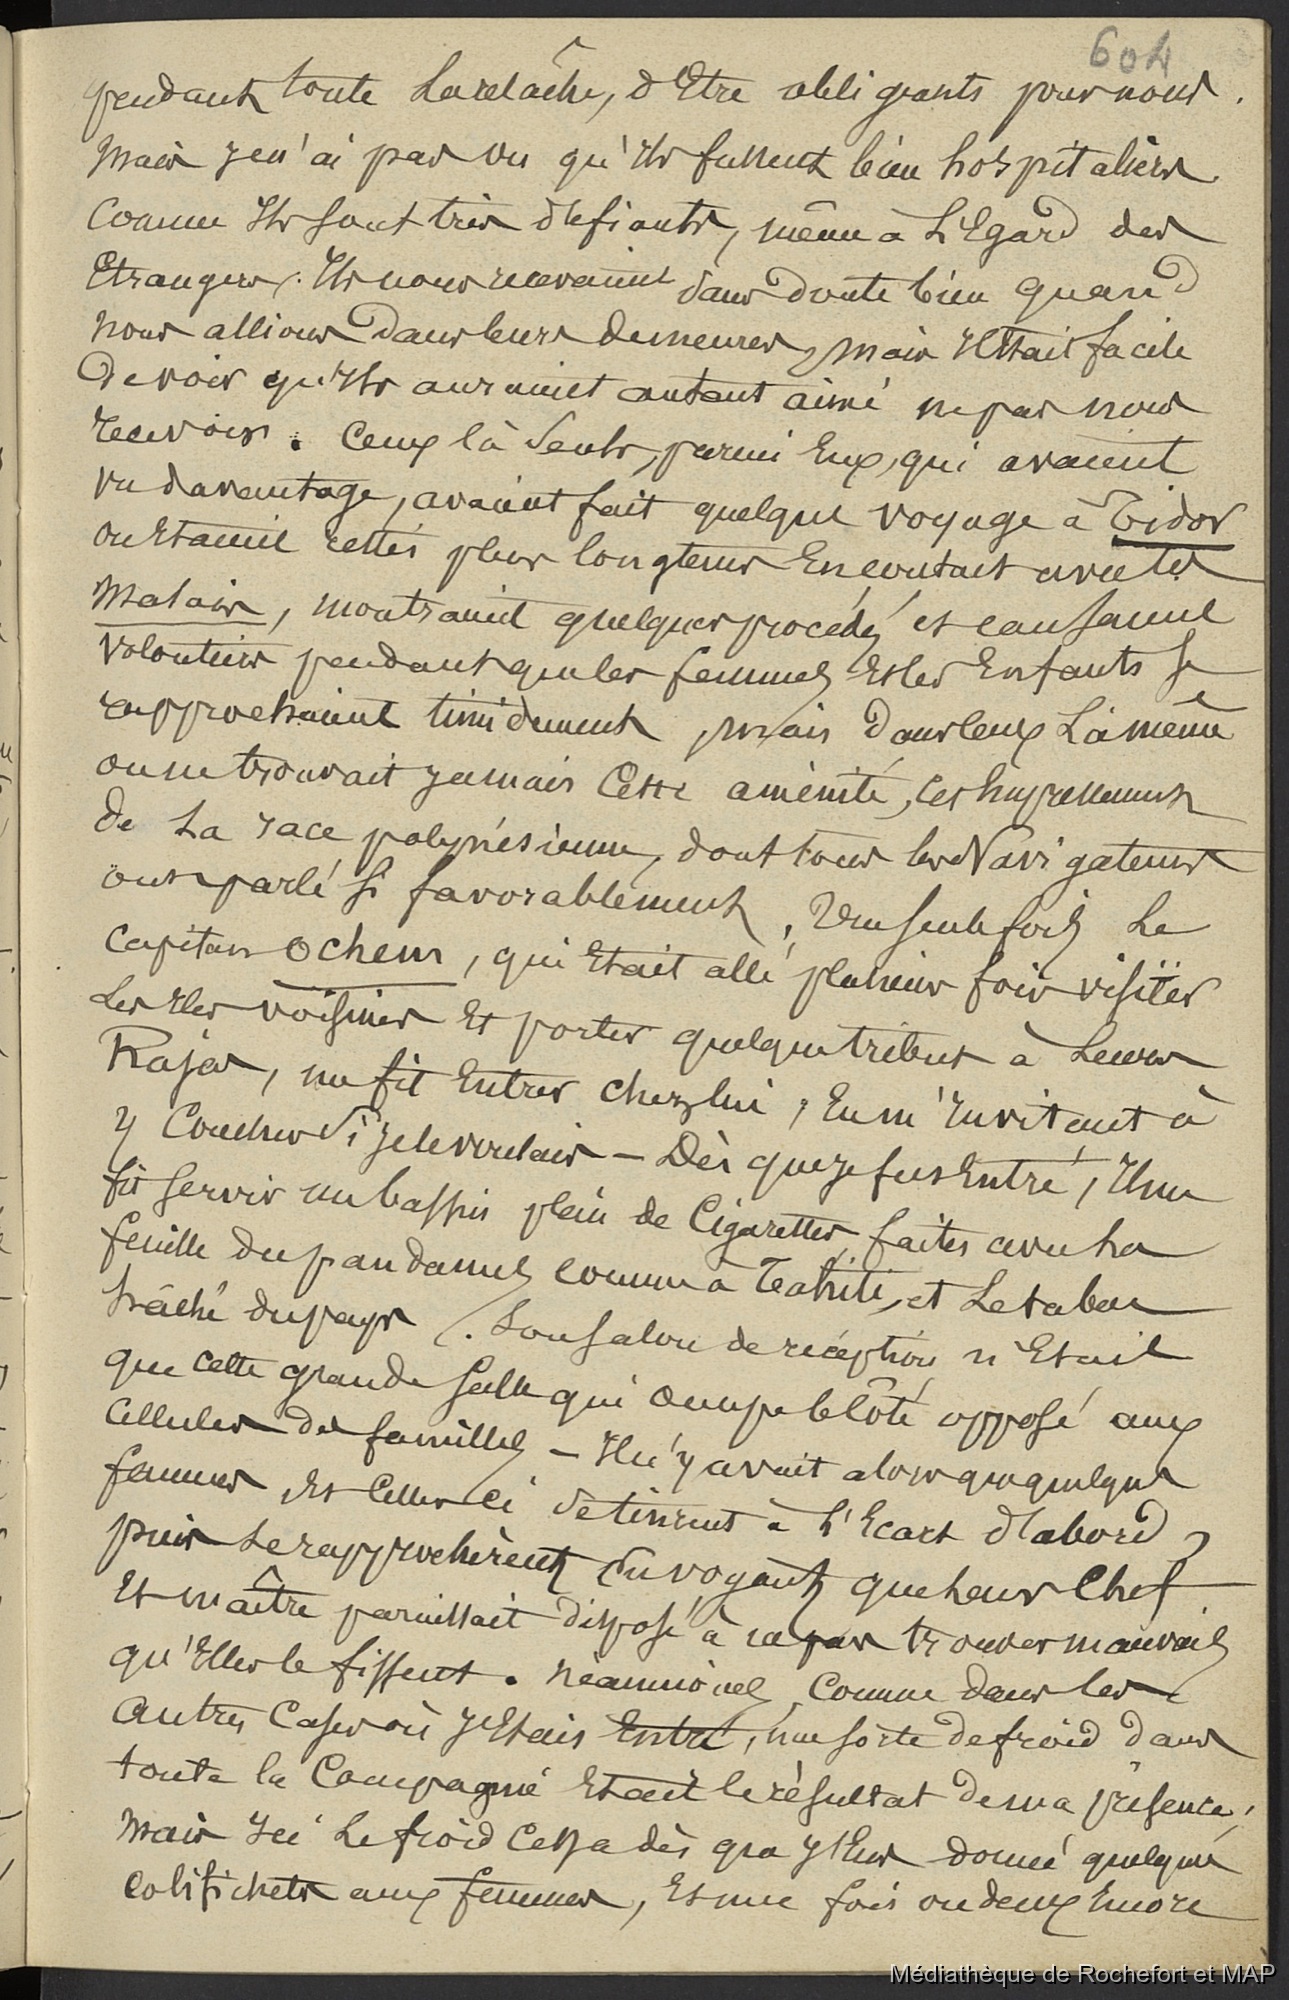 604
pendant toute La relâche, d'Etre obligeants pour nous.
Mais je n'ai pas vu qu'Ils fussent bien hospitaliers
Comme Ils sont très défiants, même à L'Egard des
Etrangers. Ils nous recevaient sans doute bien quand
nous allions Dans leurs demeures, mais Il Etait facile
De voir qu'Ils auraient autant aimé ne pas nous
recevoir. Ceux là Seuls, parmi Eux, qui avaient
vu davantage, avaient fait quelque voyage à Tidor
ou Etaient restés plus longtems En contact avec les
Malais, montraient quelques procédés et causaient
volontiers pendant que les femmes Et les Enfants se
rapprochaient timidement, mais Dans ceux Là même
on ne trouvait jamais Cette aménité, cet Empressement
de La race polynésienne, dont tous les Navigateurs
ont parlé si favorablement. Une seule fois Le
Capitan Ochem, qui Etait allé plusieurs fois visiter
Les Iles voisines Et porter quelque tribut à Leurs
Rajas, me fit Entrer chez lui, En m'Invitant à
y Coucher Si je le voulais — Dès que je fus Entré, Il me
fit servir un bassin plein de Cigarettes, faites avec La
feuille du pandanus comme à Tahiti, et Le tabac
hâché du pays. Son salon de réception n'Etait
que cette grande salle qui occupe le côté opposé aux
Cellules de familles — Il n'y avait alors que quelques
femmes, Et Celles ci Se tinrent à L'Ecart d'abord,
puis Se rapprochèrent En voyant que Leur Chef
Et maître paraissait disposé à ne pas trouver mauvais
qu'Elles le fissent. Néanmoins, Comme dans les
Autres Cases où j'Etais Entré, une sorte de froid dans
toute la Compagnie Etait le résultat de ma présence,
Mais Ici Le froid Cessa dès que j'Eus donné quelques
Colifichets aux femmes, Et une fois ou deux Encore
Médiathèque de Rochefort et MAP